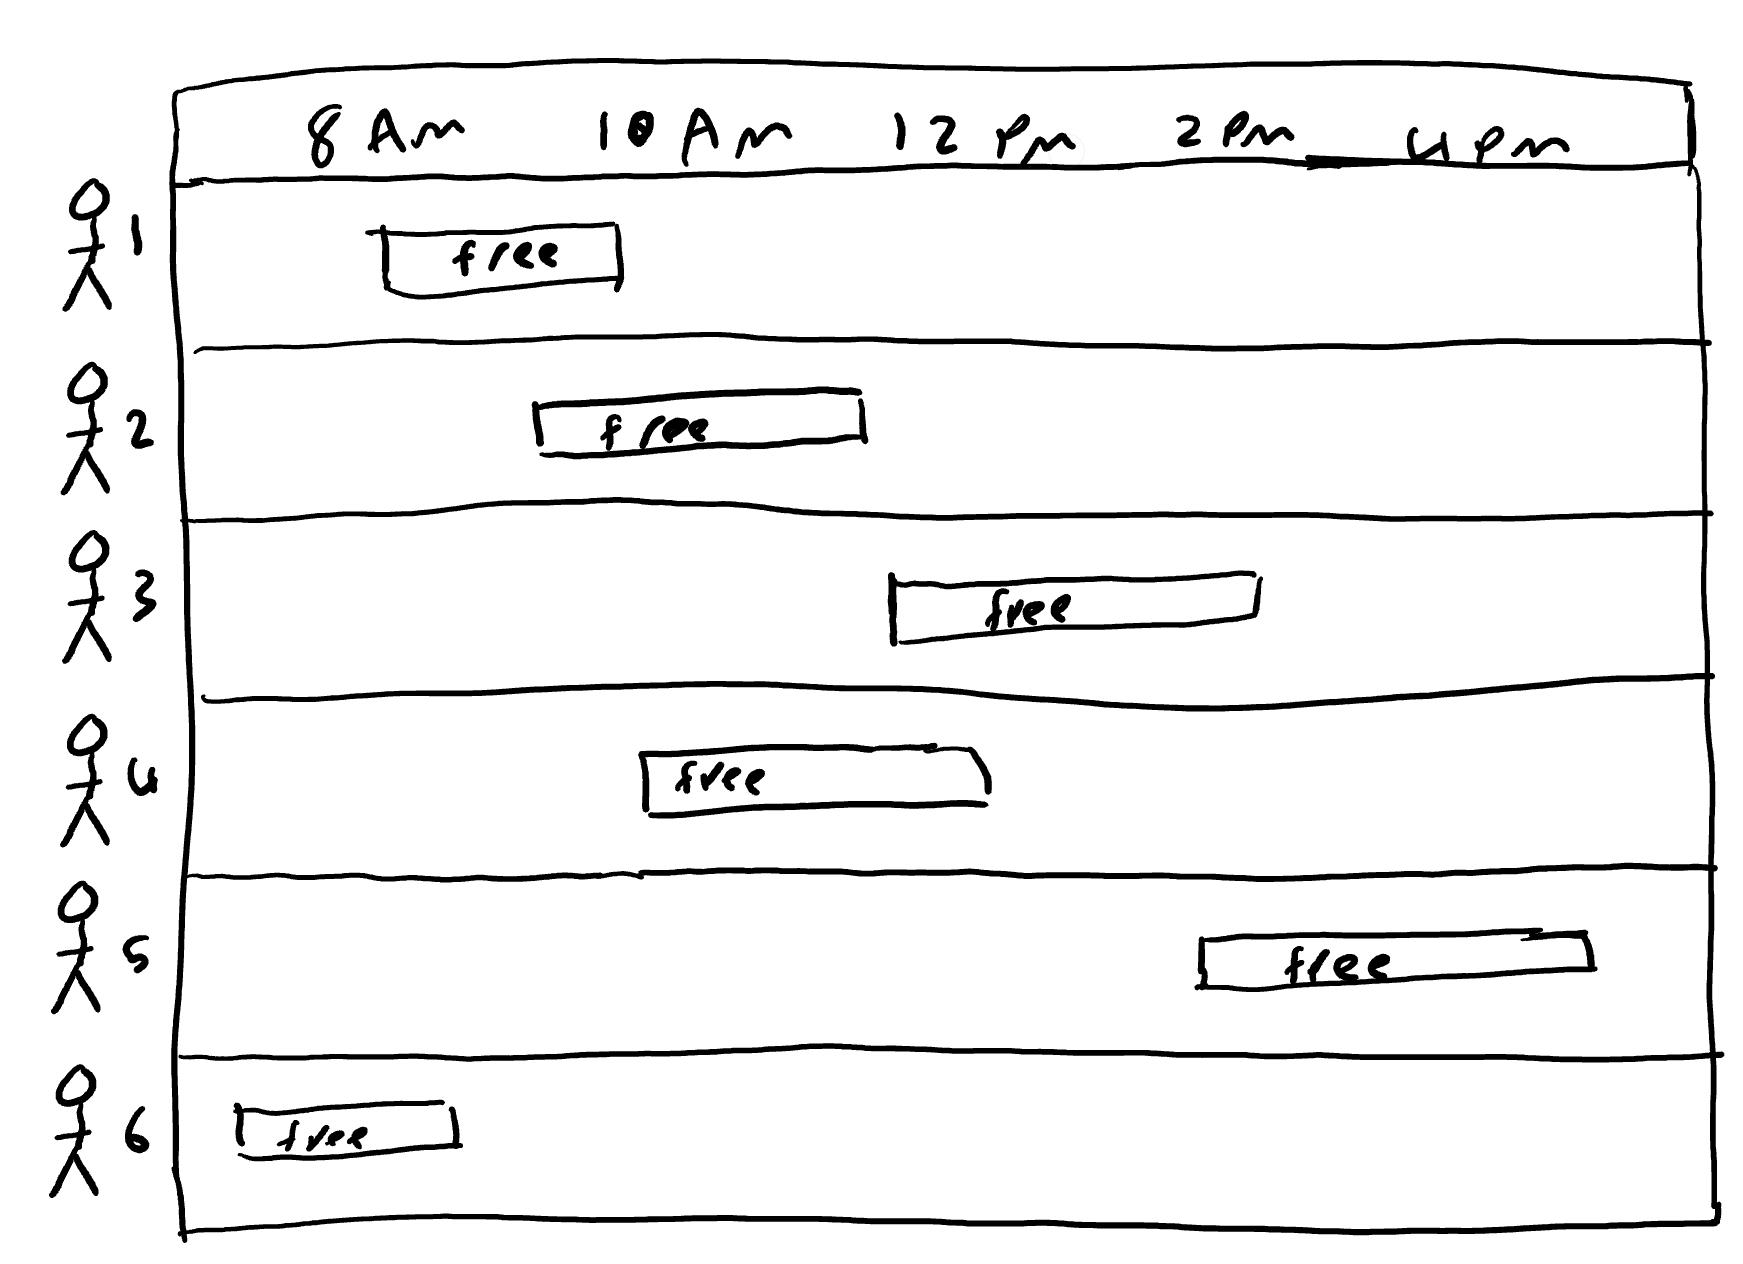 8 Am 10 Am 12 Pm 2 Pm 4 Pm
1 free
2 free
3 free
4 free
5 free
6 free